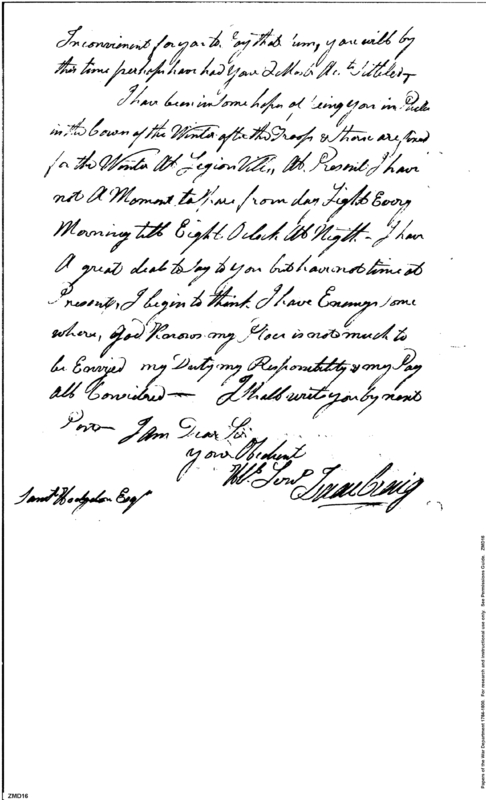 Inconvenient for you to pay that sum, you will by
this time perhaps have had your 2 Most Acts. Settled
I have been in some hopes of seeing you in
in the Cours of the Winter after the Troops & those are fixed
for the Winter At Legion Ville, At Present I have
not A Moment to Spare from day Light Every
Morning till Eight O Clock At Nigth - I have
A great deal to Say to You but have not time at
Present, I begin to think I have Enemys some
where, God Knows my Place is not much to
be Envied my Duty my Responsibility & my Pay
all Considred — I Shall write you by next
Post I am Dear Sir
your Obedient
Hble. Servt.
Isaac Craig
Saml. Hodgdon Esqr.
ZMD16
Papers of the War Department 1784-1800. For research and instructional use only. See Permissions Guide. ZMD16